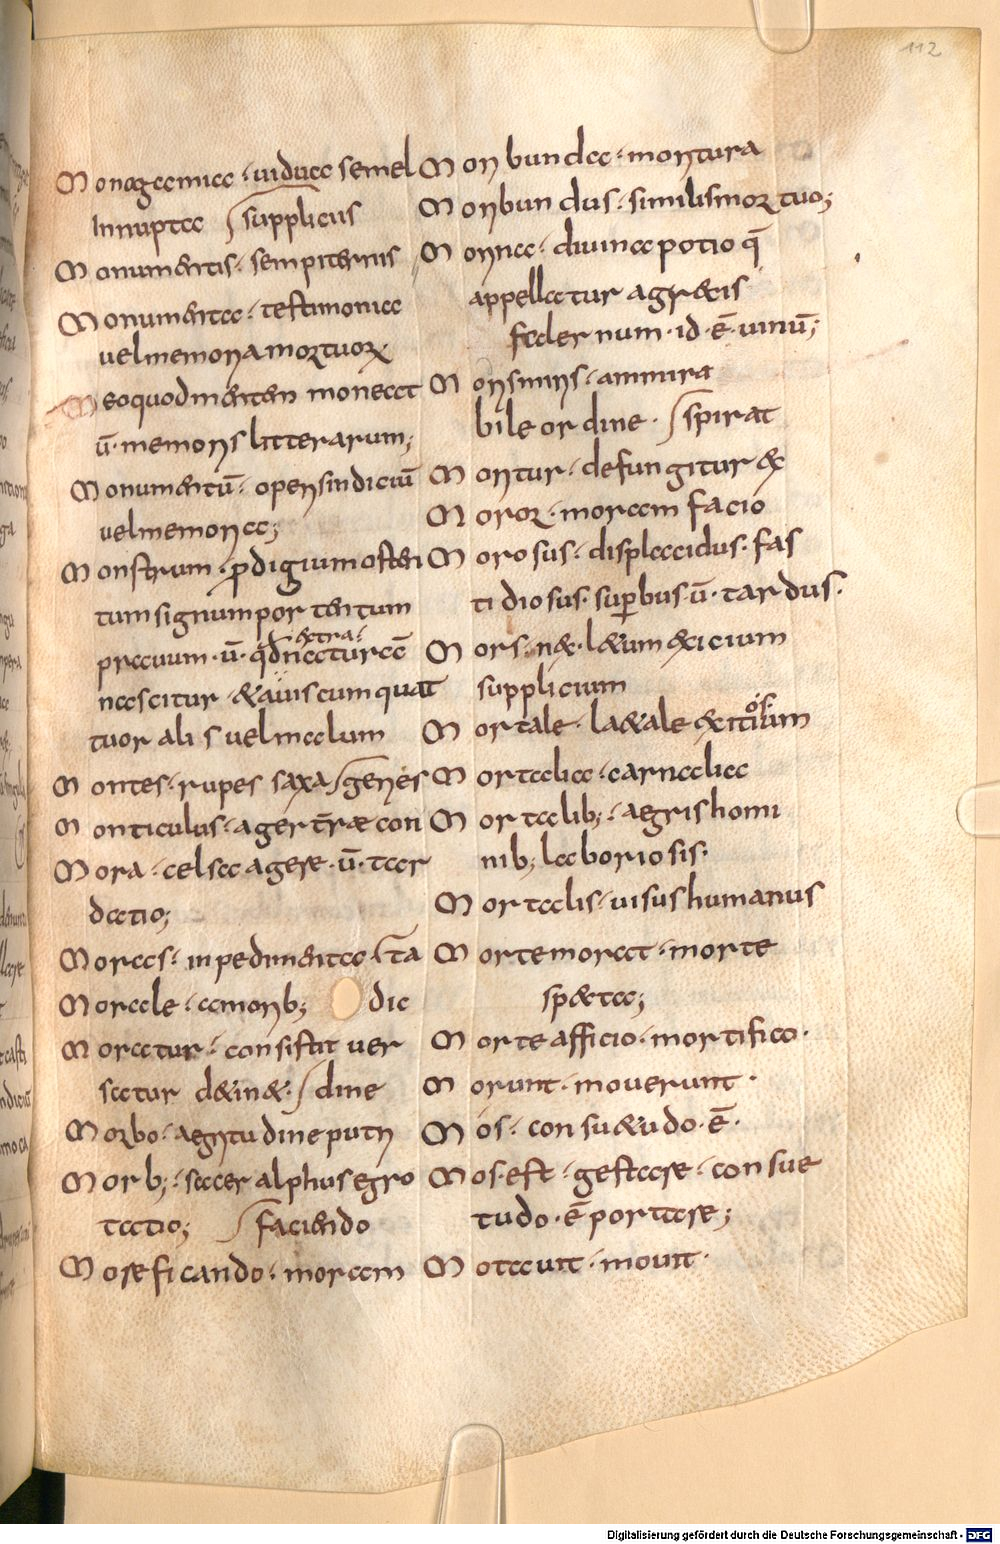 112
Monogamia · uiduae semel
Innupta ſ supplicus
Monumentis · sempiternis
Monumenta · testimonia
uel memoria mortuoꝝ
Meo quod mentem moneat
ū · memoris litterarum;
Monumentū · operis indiciū
uel memoria;
Monstrum · ꝓdigium osten
tum signum portentum
prauum · ū · qd̄ naturae
&tra
nascitur · & auis cum quat
tuor alis uel malum
Montes · rupes saxa ſ generis
Monticulus · agger t̄ræ con
Mora · celsa agere · ū · tar
datio;
Moras · inpedimenta ſ ta
Morale · amorib; die
Moratur · consistit uer
satur d&in& · ſ dine
Morbo · aegritudine putri
Morb; · sacer alphus egro
tatio; ſ faciendo
Moreficando · moram
Moribunda · moritura
Moribundus · similis mortuo;
Morina · diuina potio q̄
appellatur a gr&cis
federnum · id · ē · uinū;
Morismiris · ammira
bile ordine · ſ spirat
Moritur · defungitur &
Moror · moram facio
Morosus · displacidus · fas
tidiosus · suꝑbus ū · tardus ·
Mors · n& · l&um & icium
supplicium
Mortale · la&ale & itiosum
Mortalia · carnalia
Mortalib; · aegris homi
nib; laboriosis ·
Mortalis · uisus humanus
Morte morat · morte
sp&ta;
Morte afficio · mortifico ·
Morunt · mouerunt ·
Mos · consu&udo · ē ·
Mos · est · gestare · consue
tudo · ē portare;
Motauit · mouit ·
Digitalisierung gefördert durch die Deutsche Forschungsgemeinschaft - DFG